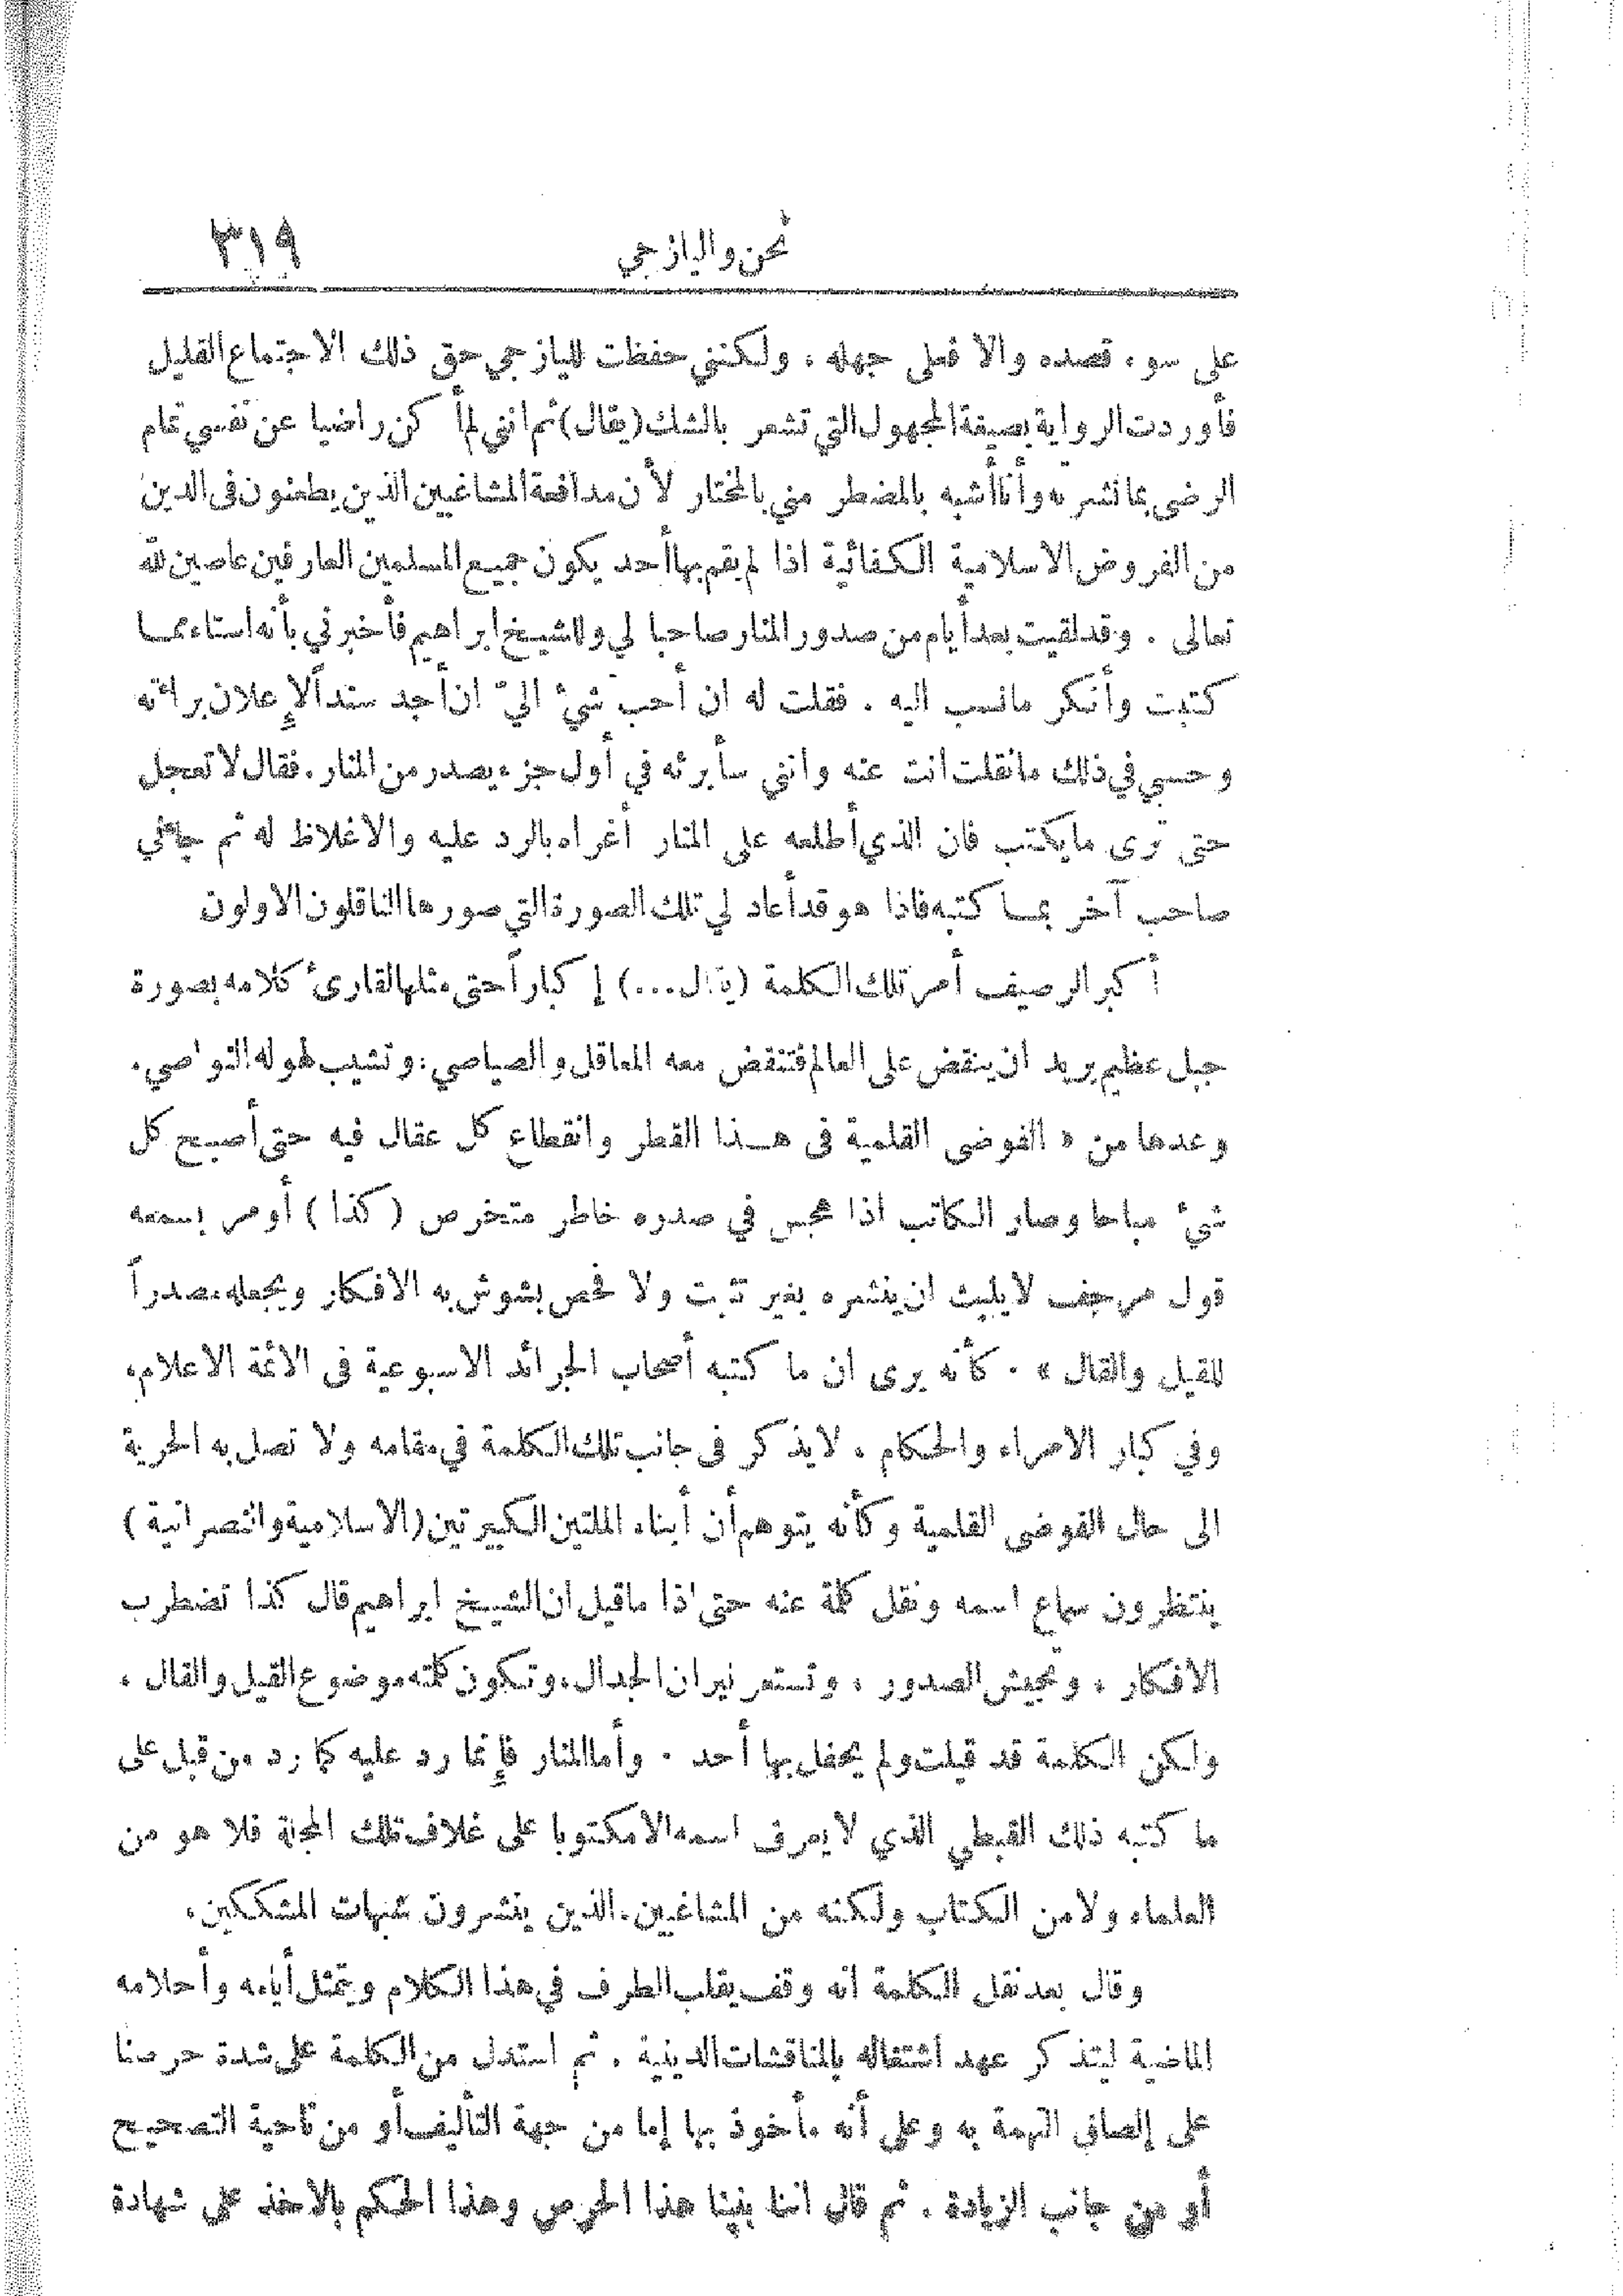 نحن واليازجي ٣١٩
على سوء قصده والا فعلى جهله ، ولكنني حفظت لليازجي حق ذلك الاجتماع القليل
فأوردت الرواية بصيغة المجهول التي تشعر بالشك (يقال) ثم انني لم أكن راضيا عن نفسي تمام
الرضى بما نشرته وأنا أشبه بالمضطر مني بالمختار لأن مدافعة المشاغبين الذين يطعنون في الدين
من الفروض الاسلامية الكفائية اذا لم يقم بها أحد يكون جميع المسلمين العارفين عاصين لله
تعالى . وقد لقيت بعد أيام من صدور المنار صاحبا لي وللشيخ ابراهيم فأخبرني بأنه استاء مما
كتبت وأنكر ما نسب اليه . فقلت له ان أحب شيء اليّ ان أجد سنداً لإعلان براءته
وحسبي في ذلك ما نقلت انت عنه وانني سأبرئه في أول جزء يصدر من المنار . فقال لا تعجل
حتى ترى ما يكتب فان الذي أطلعه على المنار أغراه بالرد عليه والاغلاظ له ثم جاءني
صاحب آخر بما كتبه فاذا هو قد أعاد لي تلك الصورة التي صورها الناقلون الاولون
أكبر الرصيف أمر تلك الكلمة (يقال...) إكباراً حتى مثلها القارئ كلامه بصورة
جبل عظيم يريد ان ينقض على العالم فتنقض معه المعاقل والصياصي : وتشيب لهوله النواصي .
وعدها من « الفوضى القلمية في هذا القطر وانقطاع كل عقال فيه حتى أصبح كل
شيء مباحا وصار الكاتب اذا هجس في صدره خاطر متخرص (كذا) أو مر بسمعه
قول مرجف لا يلبث ان ينشره بغير تثبت ولا فحص يشوش به الافكار ويجعله مصدراً
للقيل والقال » . كأنه يرى ان ما كتبه أصحاب الجرائد الاسبوعية في الائمة الاعلام ،
وفي كبار الامراء والحكام ، لا يذكر في جانب تلك الكلمة في مقامه ولا تصل به الحرية
الى حال الفوضى القلمية وكأنه يتوهم أن أبناء الملتين الكبيرتين (الاسلامية والنصرانية)
ينتظرون سماع اسمه ونقل كلمة عنه حتى اذا ما قيل ان الشيخ ابراهيم قال كذا تضطرب
الافكار ، وتجيش الصدور ، وتستعر نيران الجدال ، وتكون كلمته موضوع القيل والقال ،
ولكن الكلمة قد قيلت ولم يحفل بها أحد . وأما المنار فإنما رد عليه كما رد من قبل على
ما كتبه ذلك القبطي الذي لا يعرف اسمه الا مكتوبا على غلاف تلك المجلة فلا هو من
العلماء ولا من الكتاب ولكنه من المشاغبين . الذين ينشرون شبهات المشككين ،
وقال بعد نقل الكلمة انه وقف يقلب الطرف في هذا الكلام ويتمثل أيامه وأحلامه
الماضية ليتذكر عهد اشتغاله بالمناقشات الدينية . ثم استدل من الكلمة على شدة حرصنا
على إلصاق التهمة به وعلى أنه مأخوذ بها إما من جهة التأليف أو من ناحية التصحيح
أو من جانب الزيادة . ثم قال اننا بنينا هذا الحرص وهذا الحكم بالاخذ على شهادة